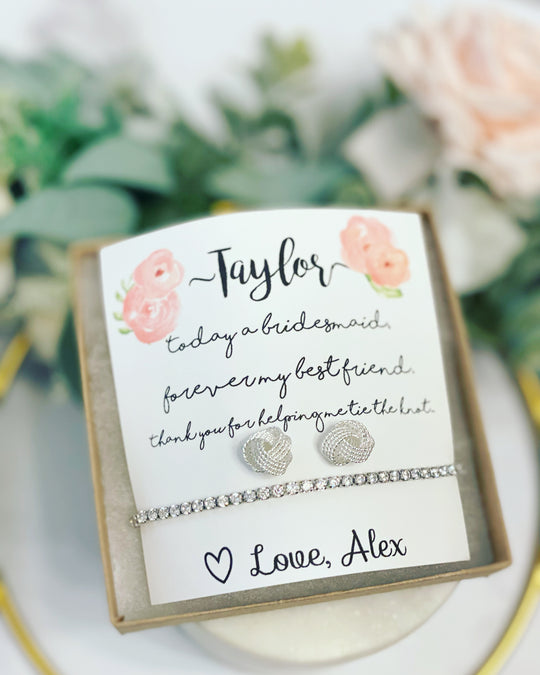 Taylor
today a bridesmaid,
forever my best friend.
thank you for helping me tie the knot.
♡ Love, Alex